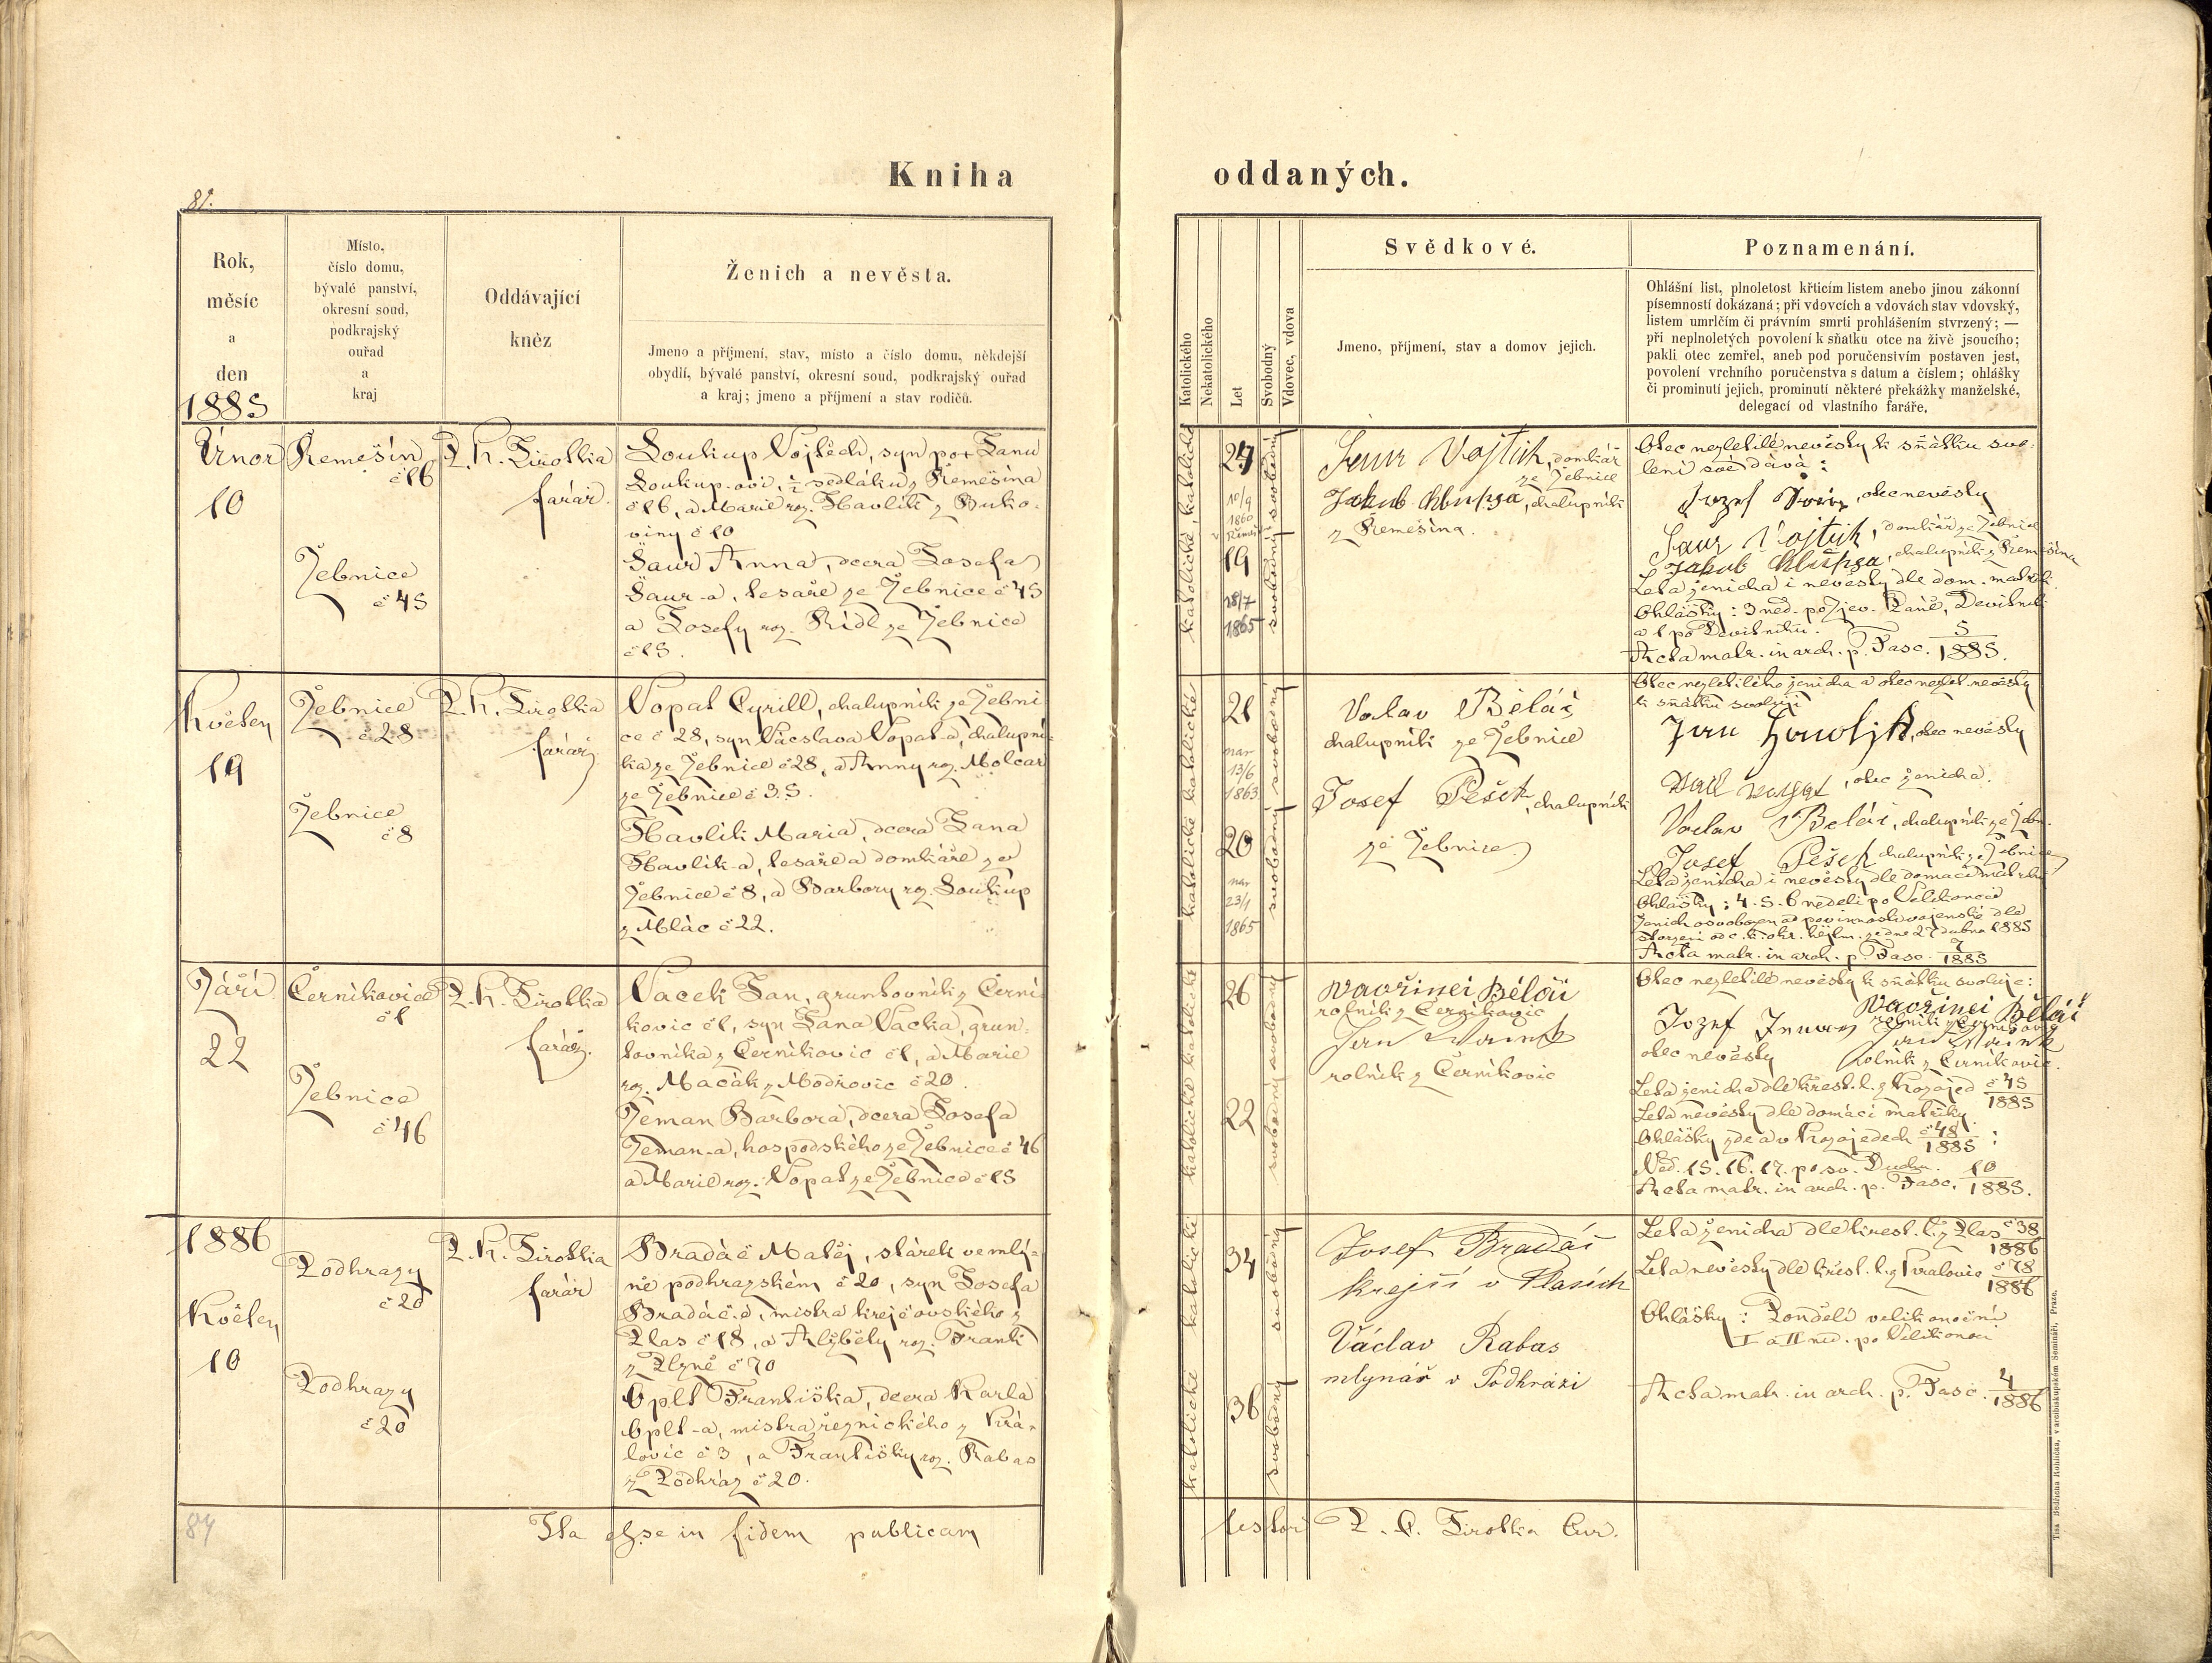 Kniha oddaných.
81.
Rok,
měsíc
a
den
1885
Místo,
číslo domu,
bývalé panství,
okresní soud,
podkrajský
ouřad
a
kraj
Oddávající
kněz
Ženich a nevěsta.
Jmeno a příjmení, stav, místo a číslo domu, někdejší
obydlí, bývalé panství, okresní soud, podkrajský ouřad
a kraj; jmeno a příjmení a stav rodičů.
Katolického
Nekatolického
Let
Svobodný
Vdovec, vdova
Svědkové.
Jmeno, příjmení, stav a domov jejich.
Poznamenání.
Ohlášní list, plnoletost křticím listem anebo jinou zákonní
písemností dokázaná; při vdovcích a vdovách stav vdovský,
listem umrlčím či právním smrti prohlášením stvrzený; —
při neplnoletých povolení k sňatku otce na živě jsoucího;
pakli otec zemřel, aneb pod poručenstvím postaven jest,
povolení vrchního poručenstva s datum a číslem; ohlášky
či prominutí jejich, prominutí některé překážky manželské,
delegací od vlastního faráře.
Únor
10
Řemešín
č 16
Žebnice
č 45
P. K. Sirotka
farář.
Soukup Vojtěch, syn pot Jana
Soukup-ovi, ½ sedláku z Řemešína
č 16, a Marie roz. Havlík z Buko-
viny č 10
Šaur Anna, dcera Josefa
Šaur-a, tesaře ze Žebnice č 45
a Josefy roz. Rídl ze Žebnice
č 15.
katolické, katolické
24
10/9
1860
19
28/7
1865
svobodná svobodný
Šaur Vojtěch, domkář
ze Žebnice
Jakub Chlupsa, chalupník
z Řemešína.
Otec nezletilé nevěsty k sňatku svo-
lení své dává:
Jozef Šaur, otec nevěsty
Šaur Vojtěch, domkář ze Žebnice
Jakub Chlupsa, chalupník z Řemešína
Leta ženicha i nevěsty dle dom. matrik.
Ohlášky: 3 ned. po Zjev. Páně, Devítník
a 1 po Devítníku.
Acta matr. in arch. p. Fasc. 5/1885.
Květen
19
Žebnice
č 28
Žebnice
č 8
P. K. Sirotka
farář
Vopat Cyrill, chalupník ze Žebni
ce č 28, syn Václava Vopat-a, chalupní-
ka ze Žebnice č 28, a Anny roz. Molcar
ze Žebnice č 35.
Havlík Maria, dcera Jana
Havlík-a, tesaře a domkáře ze
Žebnice č 8, a Barbory roz. Soukup
z Mlác č 22.
katolické katolické
21
nar
13/6
1863
20
nar
23/1
1865
svobodná svobodný
Václav Běláč
chalupník ze Žebnice
Josef Pešek, chalupník
ze Žebnice
Otec nezletilého ženicha a otec nezlet. nevěsty
k sňatku svolují
Jan Havlík, otec nevěsty
Vopat, otec ženicha.
Václav Běláč, chalupník ze Žebn.
Josef Pešek chalupník ze Žebnice
Leta ženicha i nevěsty dle domácí matriky
Ohlášky: 4. 5. 6 neděli po Velikonoci
Ženich osvobozen od povinnosti vojenské dle
stvrzení od c. k. okr. hejtm. ze dne 27 dubna 1885
Acta matr. in arch. p. Fasc. 7/1885
Září
22
Černíkovice
č 1
Žebnice
č 46
P. K. Sirotka
farář.
Vacek Jan, gruntovník z Černí
kovic č 1, syn Jana Vacka, grun-
tovníka z Černíkovic č 1, a Marie
roz. Macák z Modřovic č 20.
Zeman Barbora, dcera Josefa
Zeman-a, hospodského ze Žebnice č 46
a Marie roz. Vopat ze Žebnice č 15
katolické katolické
26
22
svobodná svobodný
Vavřinei Běláč
rolník z Černíkovic
Jan
rolník z Černíkovic
Otec nezletilé nevěsty k sňatku svoluje:
Jozef Zeman
otec nevěsty
Vavřinei Běláč
rolník z Černíkovic
rolník z Černíkovic.
Leta ženicha dle křest. l. z Kozojed č 45/1885
Leta nevěsty dle domácí matriky.
Ohlášky zde a v Kozojedech č 48/1885:
Ned. 15. 16. 17. po sv. Duchu.
Acta matr. in arch. p. Fasc. 10/1885.
1886
Květen
10
Podhrazy
č 20
Podhrazy
č 20
P. K. Sirotka
farář
Bradáč Matěj, stárek ve mlý-
ně podhrazském č 20, syn Josefa
Bradáč-a, mistra krejčovského z
Plas č 18, a Alžběty roz. Frank
z Plzně č 70
Oplt Františka, dcera Karla
Oplt-a, mistra řeznického z Krá-
lovic č 3, a Františky roz. Rabas
z Podhraz č 20.
katolické katolické
34
36
svobodný svobodný
Josef Bradáč
krejčí v Plasích
Václav Rabas
mlynář v Podhrází
Leta ženicha dle křest. l. z Plas č 38/1886
Leta nevěsty dle křest. l. z Kralovic č 78/1886
Ohlášky: Pondělí velikonoční
I a II ned. po Velikonoci
Acta matr. in arch. p. Fasc. 4/1886
84
Ita esse in fidem publicam testor P. C. Sirotka Cur.
Tisk Bedřicha Rohlíčka, v arcibiskupském Semináři, Praze.